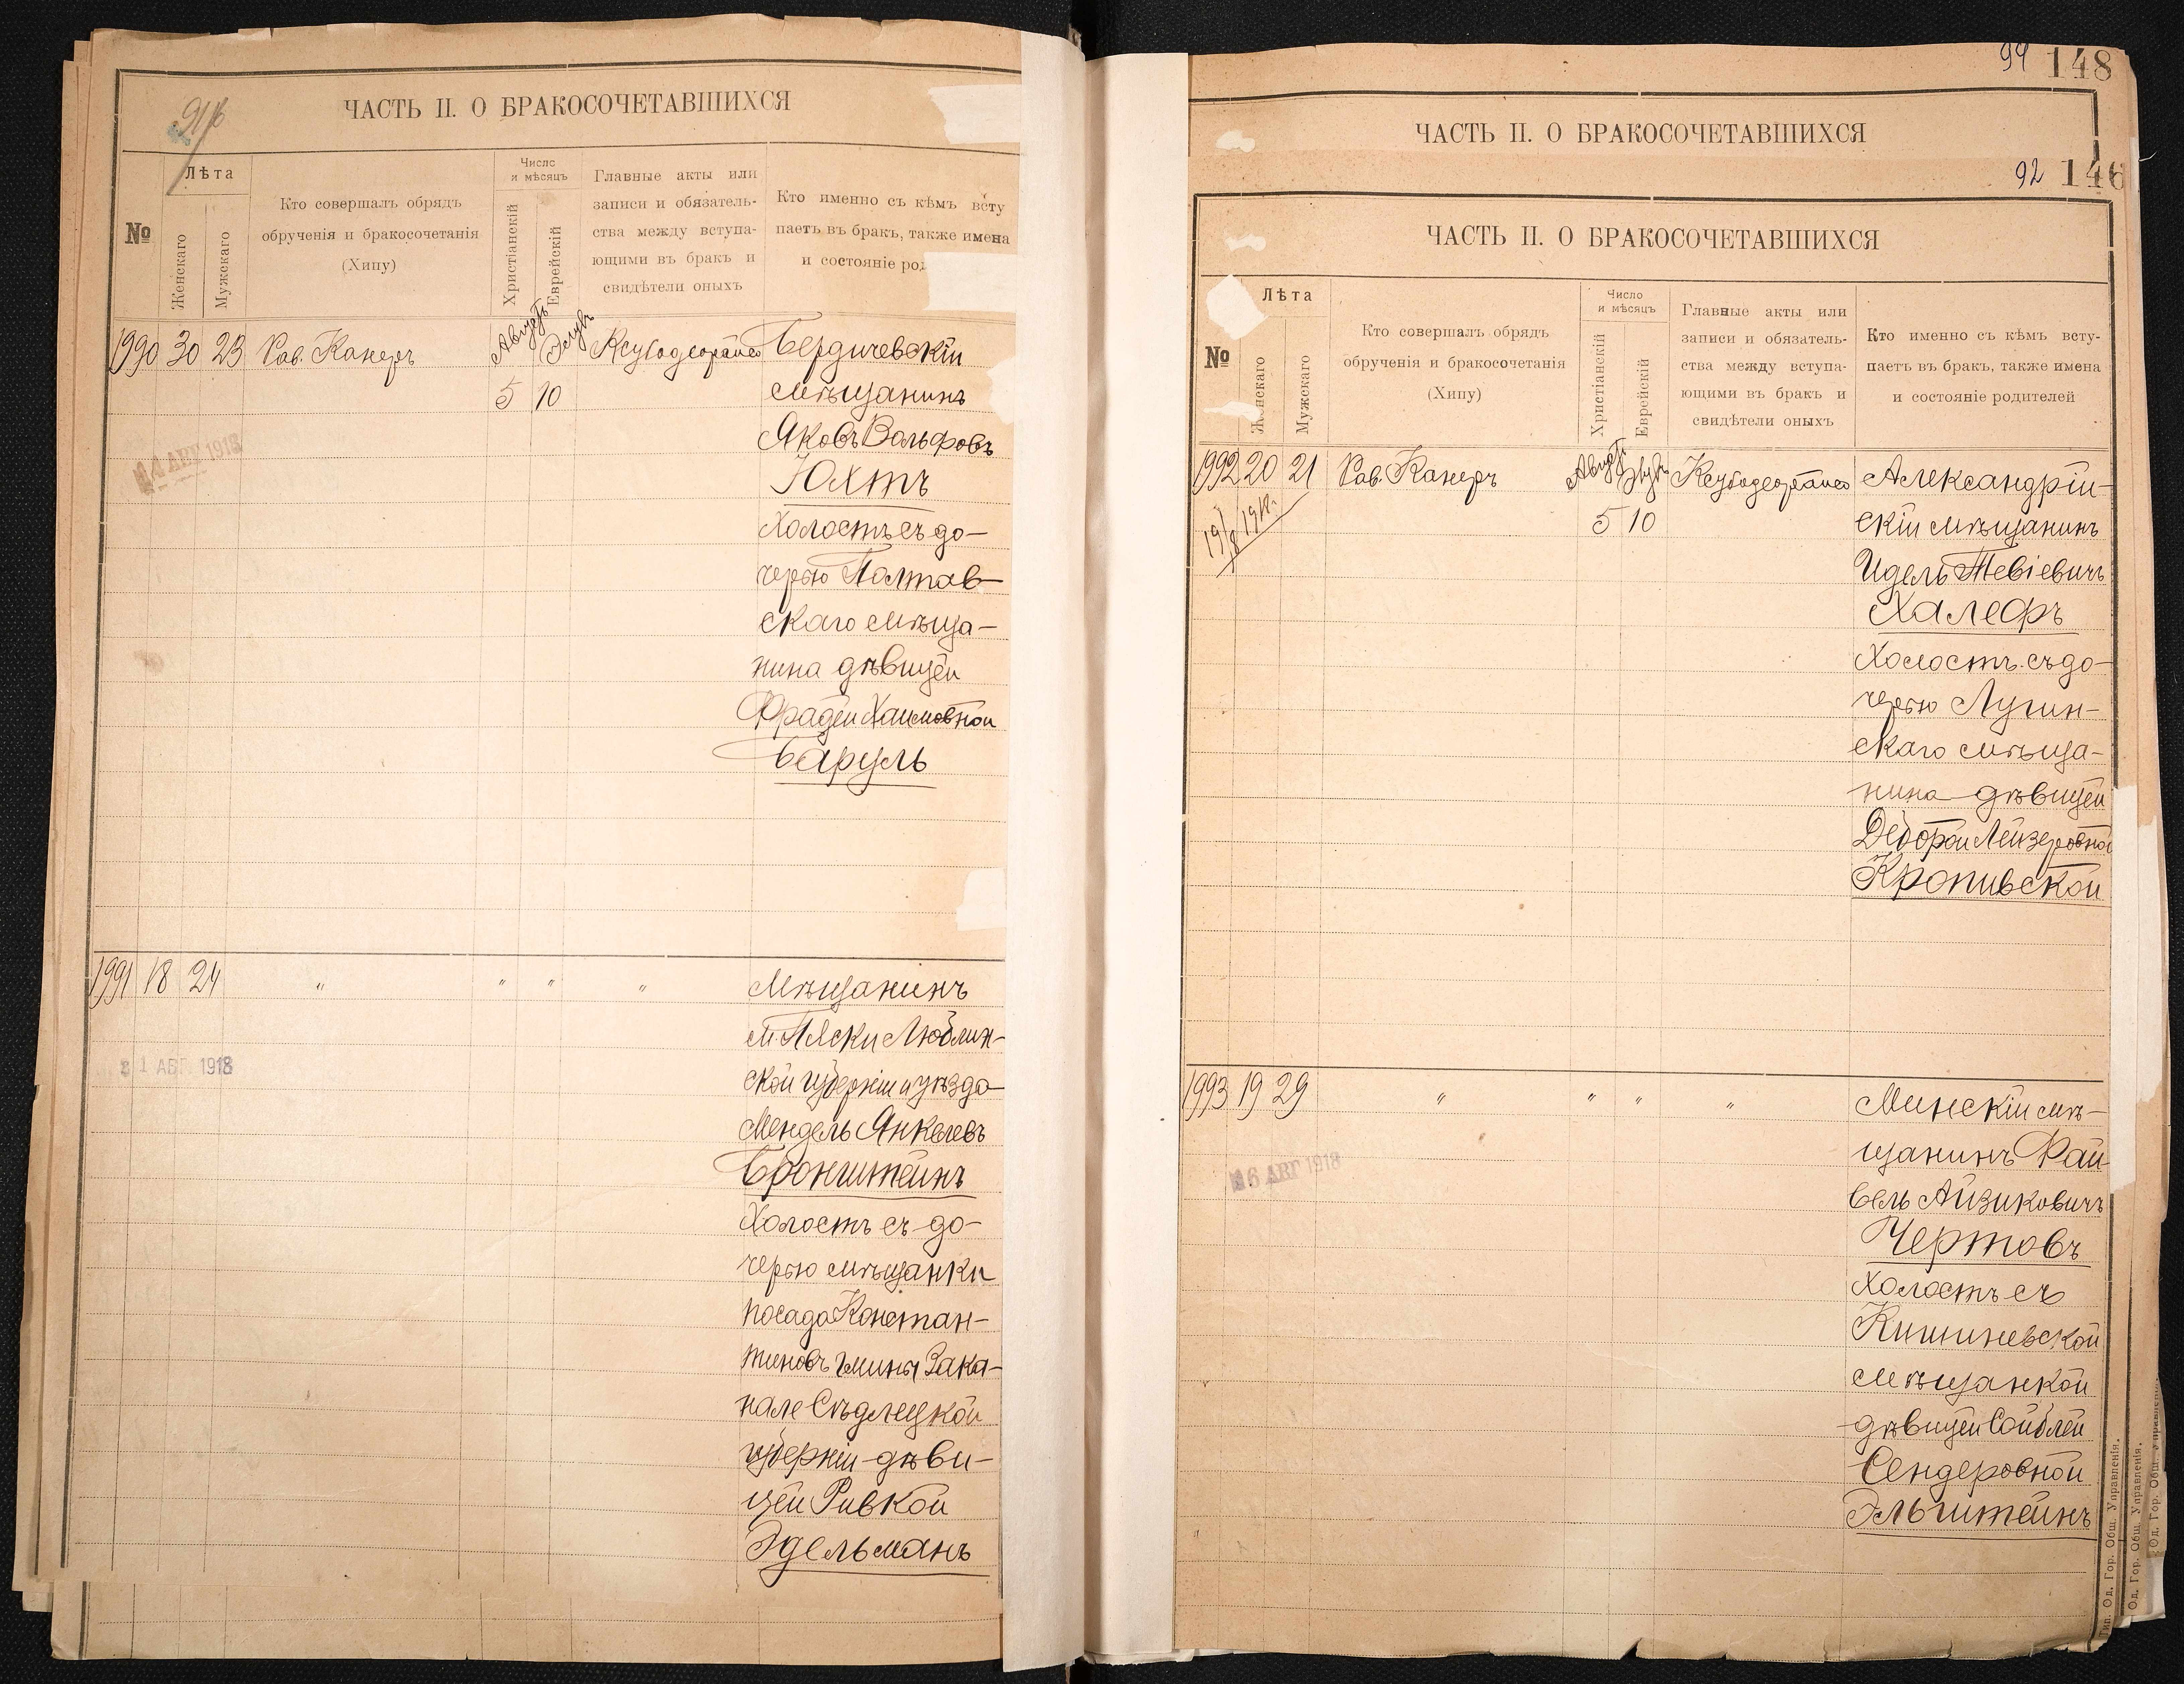 91/б
ЧАСТЬ II. О БРАКОСОЧЕТАВШИХСЯ
№
Лѣта
Женскаго
Мужскаго
Кто совершалъ обрядъ
обрученія и бракосочетанія
(Хипу)
Число
и мѣсяцъ
Христіанскій
Еврейскій
Главные акты или
записи и обязатель-
ства между вступа-
ющими въ бракъ и
свидѣтели оныхъ
Кто именно съ кѣмъ всту
паетъ въ бракъ, также имена
и состояніе род
1990 30 23 Рав. Канеръ Августъ Элулъ Бердичевскій
5 10 мѣщанинъ
Яковъ Вольфовъ
Юхтъ
холостъ съ до-
черью Полтав-
скаго мѣща-
нина дѣвицей
Фрадей Хаимовной
Баруль
14 АВГ 1918
1991 18 24 " " " " Мѣщанинъ
м. Пяски Люблин-
ской губерніи и уѣзда
Мендель Янкелевъ
Бронштейнъ
холостъ съ до-
черью мѣщанки
посада Констан-
тиновъ гмины Зака-
нале Сѣдлецкой
губерніи дѣви-
цей Ривкой
Эдельманъ
21 АВГ 1918
94 148
ЧАСТЬ II. О БРАКОСОЧЕТАВШИХСЯ
92 146
ЧАСТЬ II. О БРАКОСОЧЕТАВШИХСЯ
№
Лѣта
Женскаго
Мужскаго
Кто совершалъ обрядъ
обрученія и бракосочетанія
(Хипу)
Число
и мѣсяцъ
Христіанскій
Еврейскій
Главные акты или
записи и обязатель-
ства между вступа-
ющими въ бракъ и
свидѣтели оныхъ
Кто именно съ кѣмъ всту-
паетъ въ бракъ, также имена
и состояніе родителей
1992 20 21 Рав. Канеръ Августъ Элулъ Александрій-
5 10 скій мѣщанинъ
Идель Тевіевичъ
Халефъ
холостъ съ до-
черью Лугин-
скаго мѣща-
нина дѣвицей
Деборой Лейзеровной
Кропивской
1993 19 29 " " " " Минскій мѣ-
щанинъ Фай
вель Айзиковичъ
Чертовъ
холостъ съ
Кишиневской
мѣщанкой
дѣвицей Сойблей
Сендеровной
Эльштейнъ
16 АВГ 1918
Тип. Од. Гор. Общ. Управленія.
Од. Гор. Общ. Управленія.
Од. Гор. Общ. Управленія